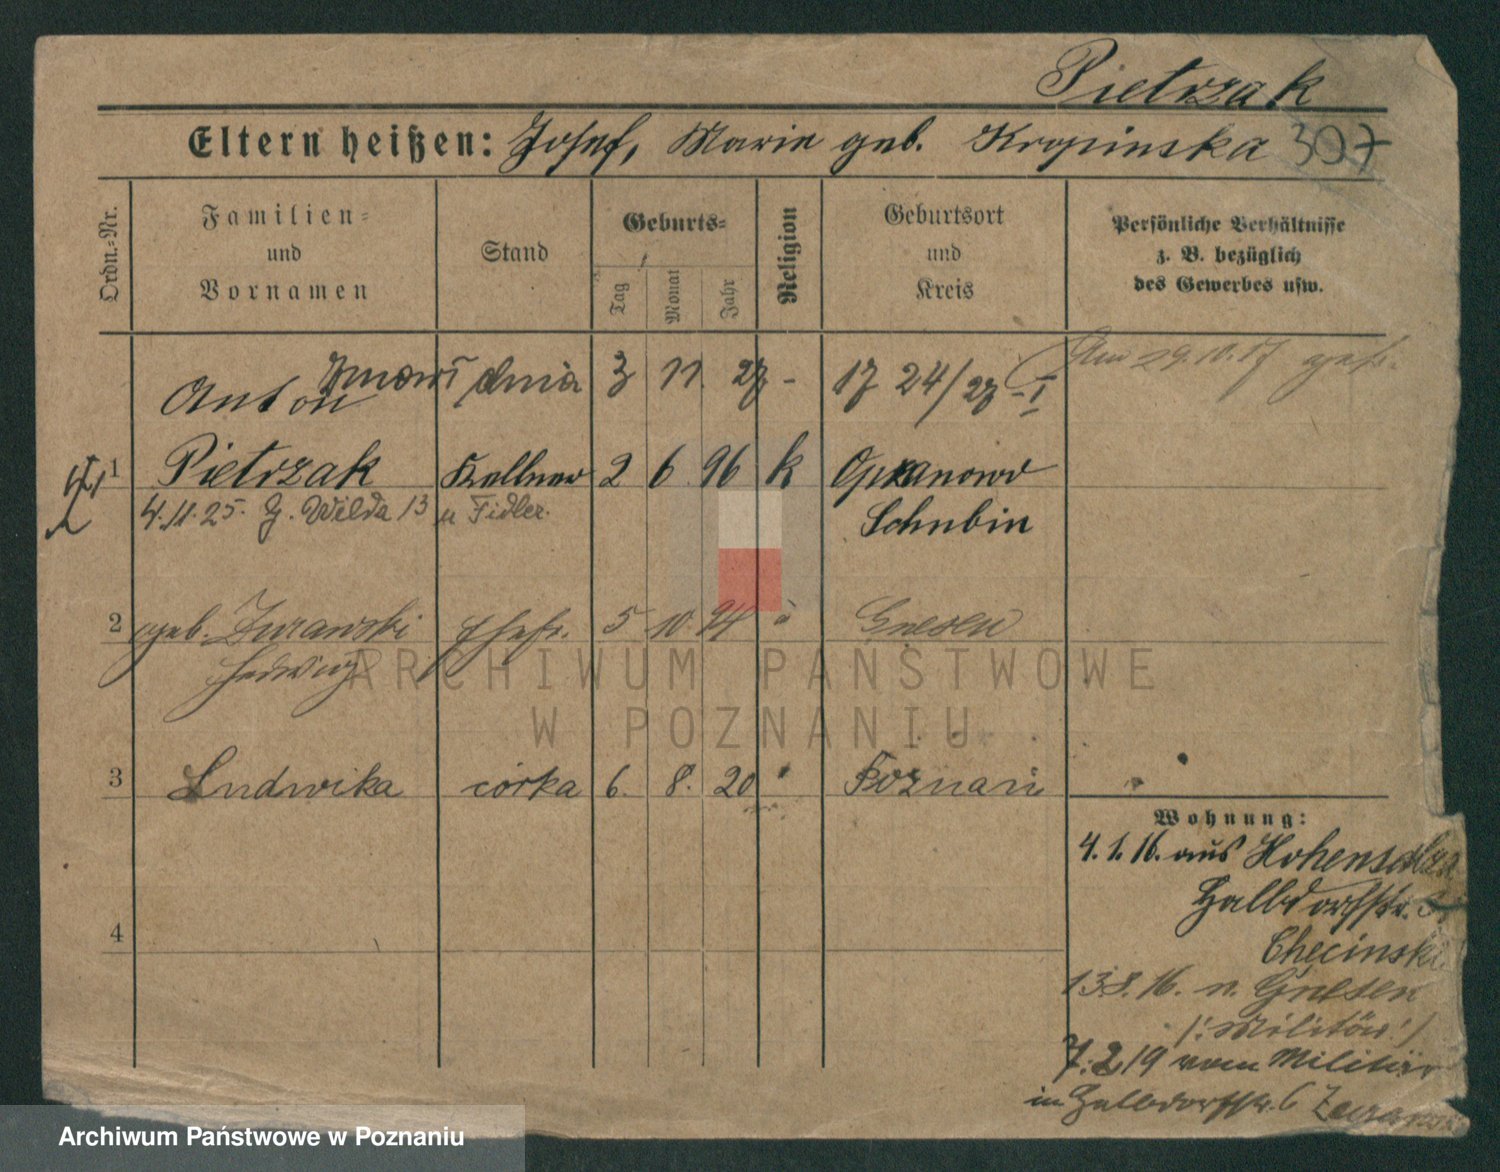 Pietrzak
Eltern heißen: Josef, Marie geb. Kropinska 307
Ordn.-Nr.
Familien-
und
Vornamen
Stand
Geburts-
Tag
Monat
Jahr
Religion
Geburtsort
und
Kreis
Persönliche Verhältnisse
z. B. bezüglich
des Gewerbes usw.
Zmarł dnia 3 11. 27 - 17 24/27 - I
Am 29.10.17 gesch.
Anton
1 Pietrzak Kellner 2 6 96 k
Schubin
4.11.25. G. Wilda 13 u Fidler.
2 geb. Zurawski Ehefr. 5 10. 94 Gnesen
Hedwig
3 Ludwika córka 6. 8. 20 Poznań
4
Wohnung:
4.1.16. aus Hohensalza
Halbdorfstr.
Checinski
13.8.16. n. Gnesen
(: Militär :)
7.2.19 vom Militär
in Halbdorfstr. 6
ARCHIWUM PAŃSTWOWE
W POZNANIU
Archiwum Państwowe w Poznaniu